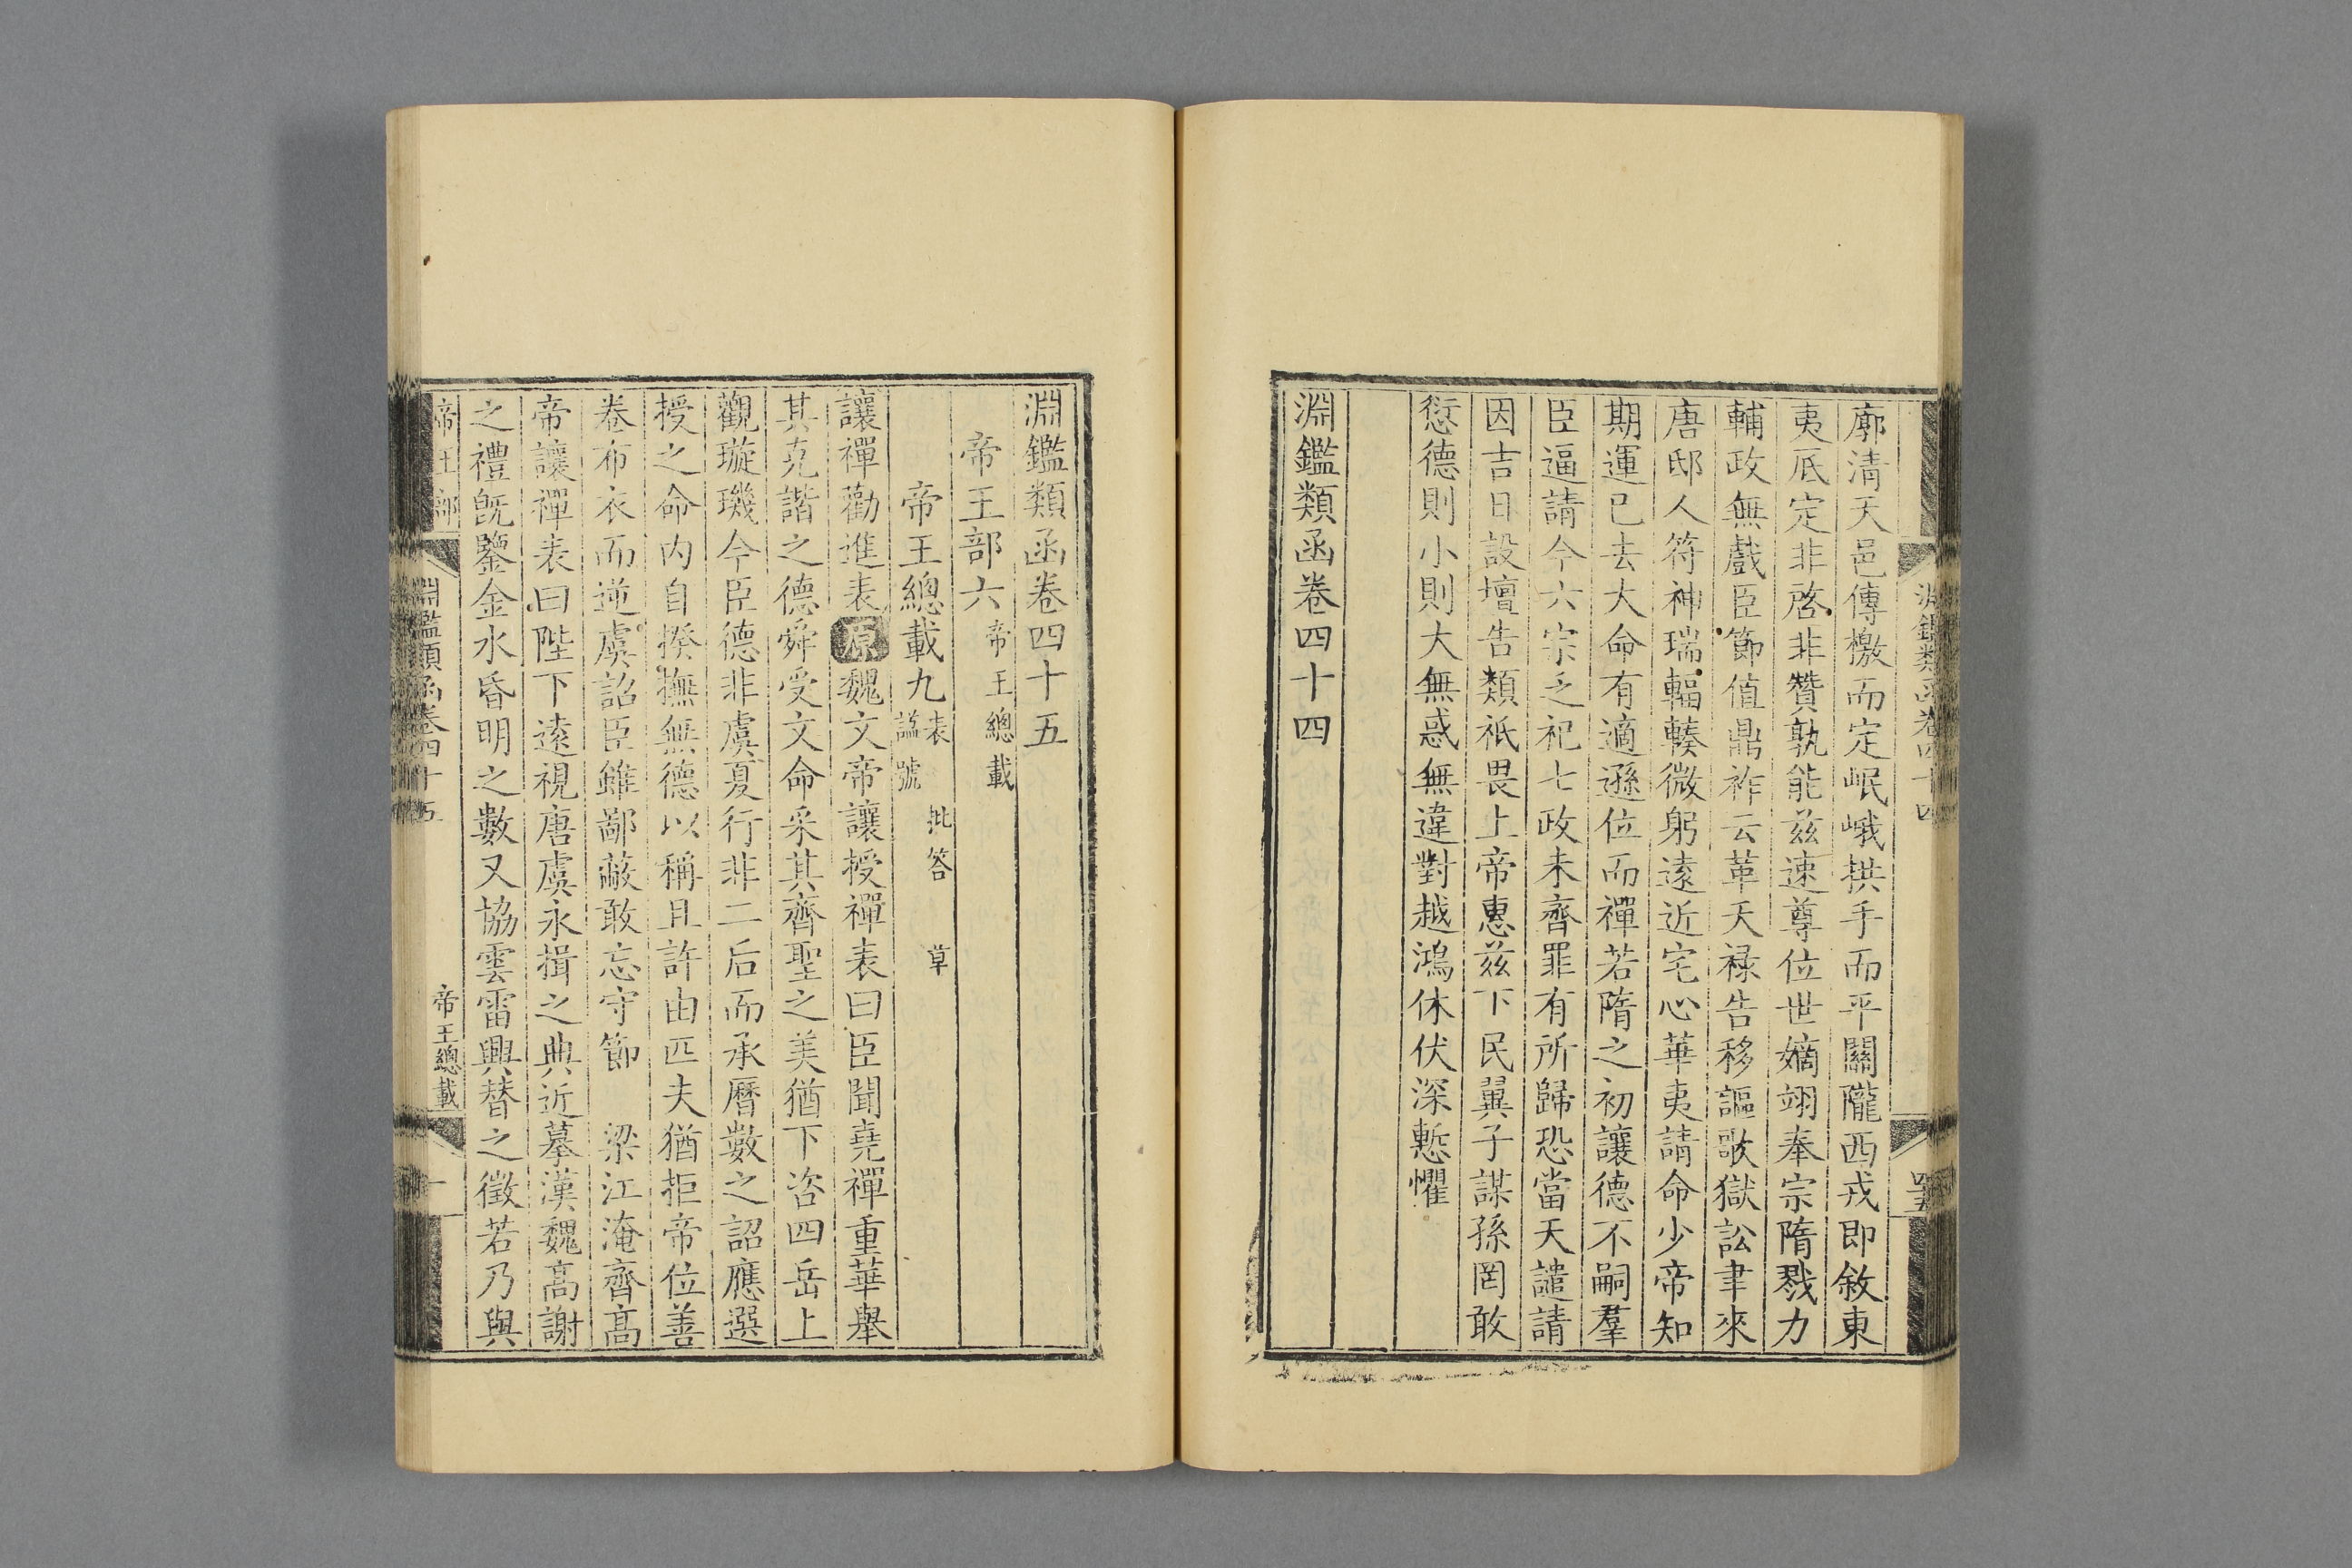 廓清天邑傳檄而定岷峨拱手而平關隴西戎即敘東
夷厎定非啓非贊孰能兹速尊位世嫡翊奉宗隋戮力
輔政無戲臣節值鼎祚云革天禄告移謳歌獄訟聿來
唐邸人符神瑞輻輳微躬遠近宅心華夷請命少帝知
期運已去大命有適遜位而禪若隋之初讓德不嗣羣
臣逼請今六宗乏祀七政未齊罪有所歸恐當天譴請
因吉日設壇告類祇畏上帝惠兹下民翼子謀孫罔敢
愆德則小則大無惑無違對越鴻休伏深慙懼
淵鑑類函卷四十四
淵鑑類函卷四十四
淵鑑類函卷四十五
帝王部六 帝王總載
帝王總載九 表 批答 草
諡號
讓禪勸進表 原 魏文帝讓授禪表曰臣聞堯禪重華舉
其克諧之德舜受文命采其齊聖之美猶下咨四岳上
觀璇璣今臣德非虞夏行非二后而承曆數之詔應選
授之命内自揆撫無德以稱且許由匹夫猶拒帝位善
卷布衣而逆虞詔臣雖鄙蔽敢忘守節 梁江淹齊高
帝讓禪表曰陛下遠視唐虞永揖之典近摹漢魏高謝
之禮旣鑒金水昏明之數又協雲雷興替之徵若乃與
帝王部 淵鑑類函卷四十五 帝王總載 一